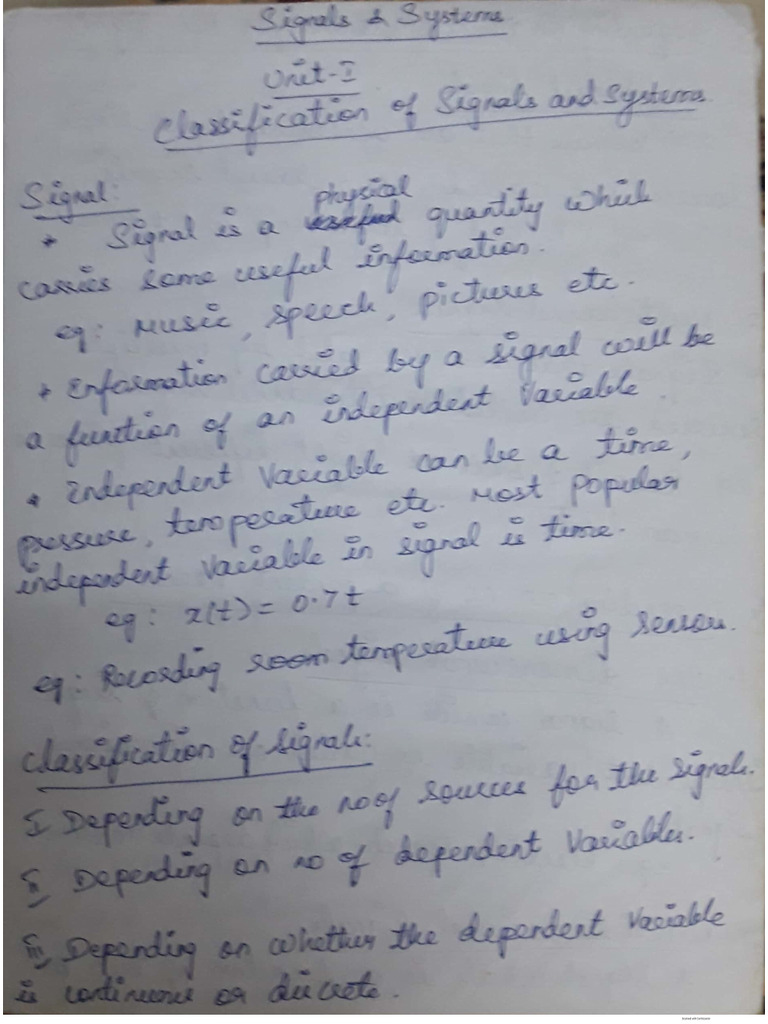 Signals & Systems
Unit-I
Classification of Signals and Systems
Signal:
physical
* Signal is a useful quantity which
carries some useful information.
eg: Music, speech, pictures etc.
* Information carried by a signal will be
a function of an independent variable.
* Independent variable can be a time,
pressure, temperature etc. Most popular
independent variable in signal is time.
eg: x(t) = 0.7t
eg: Recording room temperature using sensor.
Classification of signals:
I Depending on the no of sources for the signals.
II Depending on no of dependent variables.
III Depending on whether the dependent variable
is continuous or discrete.